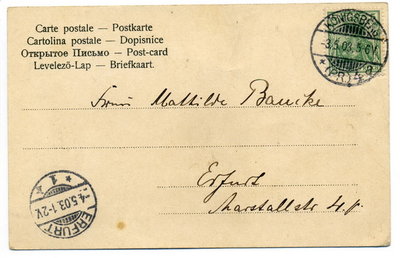 Carte postale — Postkarte
Cartolina postale — Dopisnice
Открытое Письмо — Post-card
Levelező-Lap — Briefkaart.
KÖNIGSBERG
-3.5.03.5-6V.
* (PR) 2
Frau Mathilde Bancke
Erfurt
Marstallstr 4 p.
ERFURT
-4.5.03.1-2V.
* 1 *